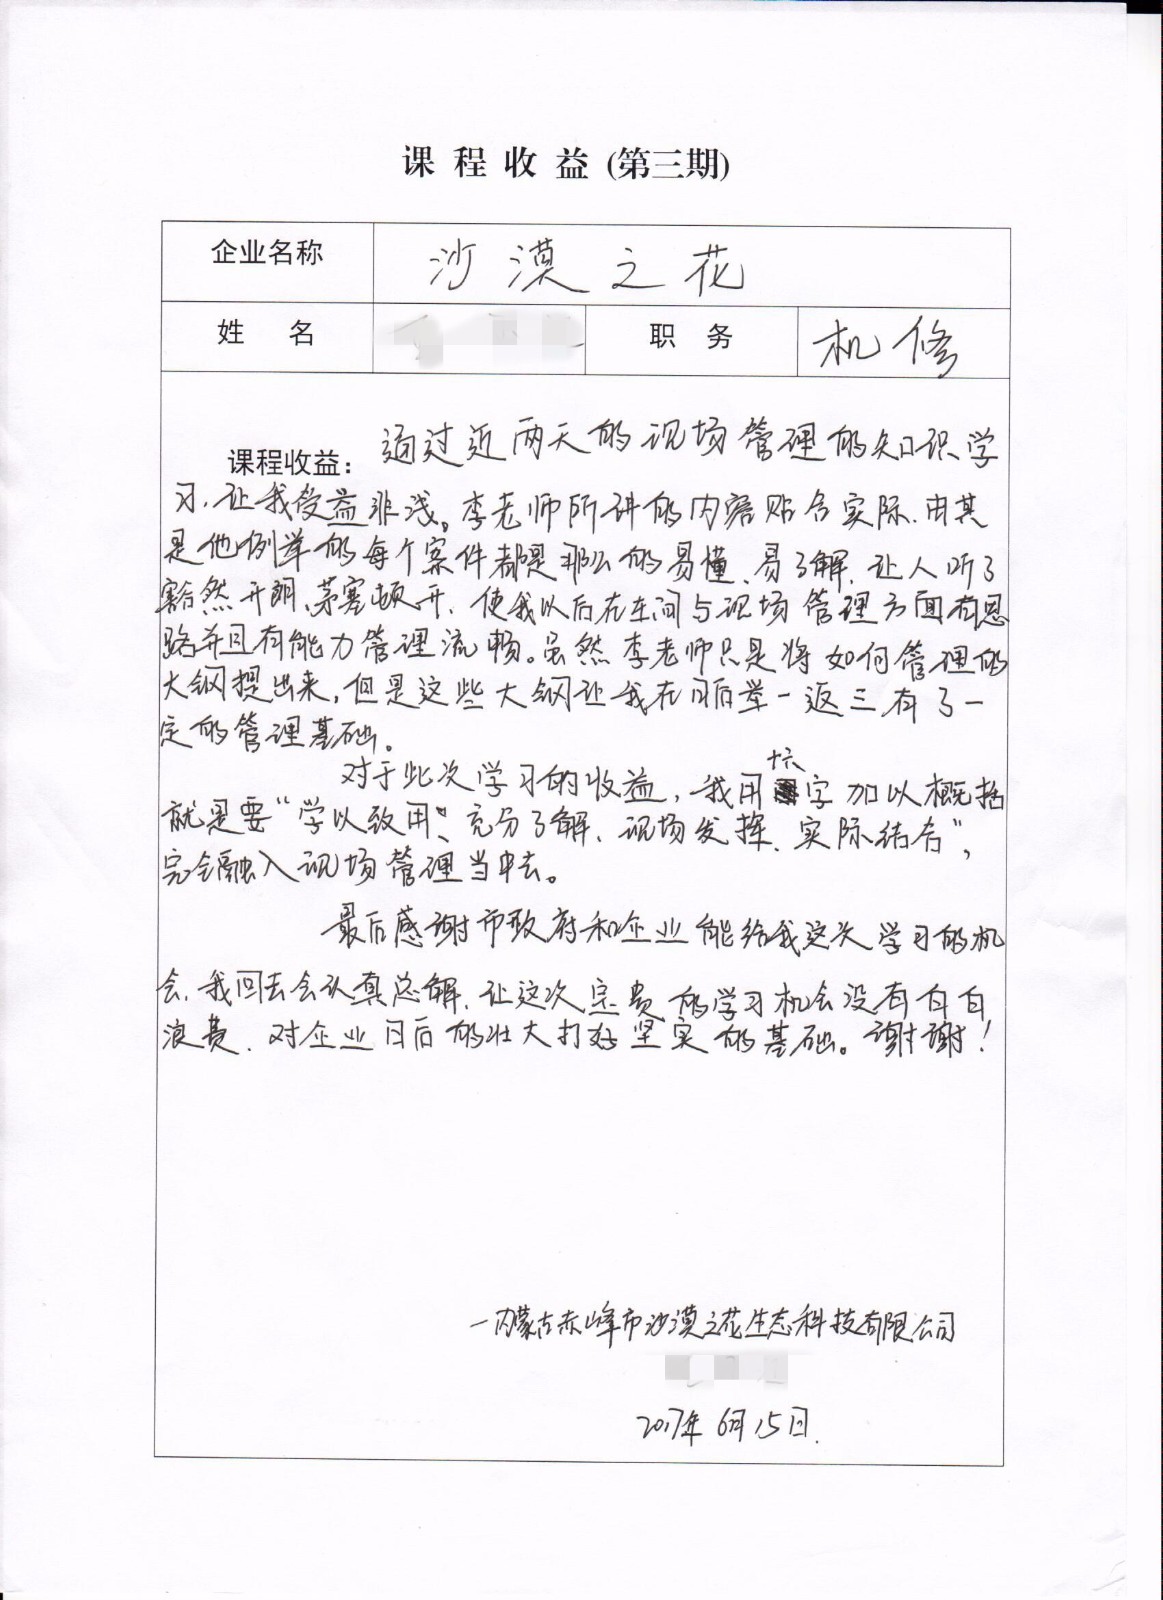 课程收益(第三期)
企业名称 沙漠之花
姓 名 职 务 机修
课程收益：通过近两天的现场管理的知识学
习，让我受益非浅。李老师所讲的内容贴合实际，由其
是他例举的每个案件都是那么的易懂、易了解，让人听了
豁然开朗、茅塞顿开，使我以后在车间与现场管理方面有思
路并且有能力管理流畅。虽然李老师只是将如何管理的
大纲提出来，但是这些大纲让我在日后举一返三，有了一
定的管理基础。
对于此次学习的收益，我用十六字加以概括
就是要“学以致用”、充分了解、现场发挥、实际结合”，
完全融入现场管理当中去。
最后感谢市政府和企业能给我这次学习的机
会，我回去会认真总解，让这次宝贵的学习机会没有白白
浪费，对企业日后的壮大打好坚实的基础。谢谢！
—内蒙古赤峰市沙漠之花生态科技有限公司
2017年6月15日.